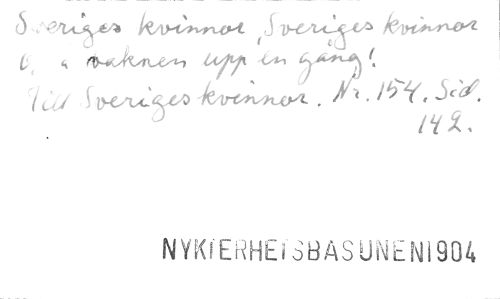 Sveriges kvinnor, Sveriges kvinnor
vaknen upp en gång!
Till Sveriges kvinnor. Nr. 154. Sid.
142.
NYKTERHETSBASUNEN 1904